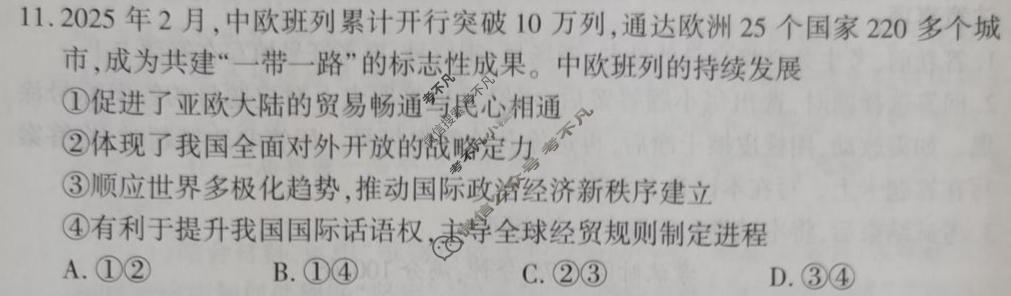 11. 2025 年 2 月,中欧班列累计开行突破 10 万列,通达欧洲 25 个国家 220 多个城
市,成为共建“一带一路”的标志性成果。中欧班列的持续发展
①促进了亚欧大陆的贸易畅通与民心相通
②体现了我国全面对外开放的战略定力
③顺应世界多极化趋势,推动国际政治经济新秩序建立
④有利于提升我国国际话语权,主导全球经贸规则制定进程
A. ①② B. ①④ C. ②③ D. ③④